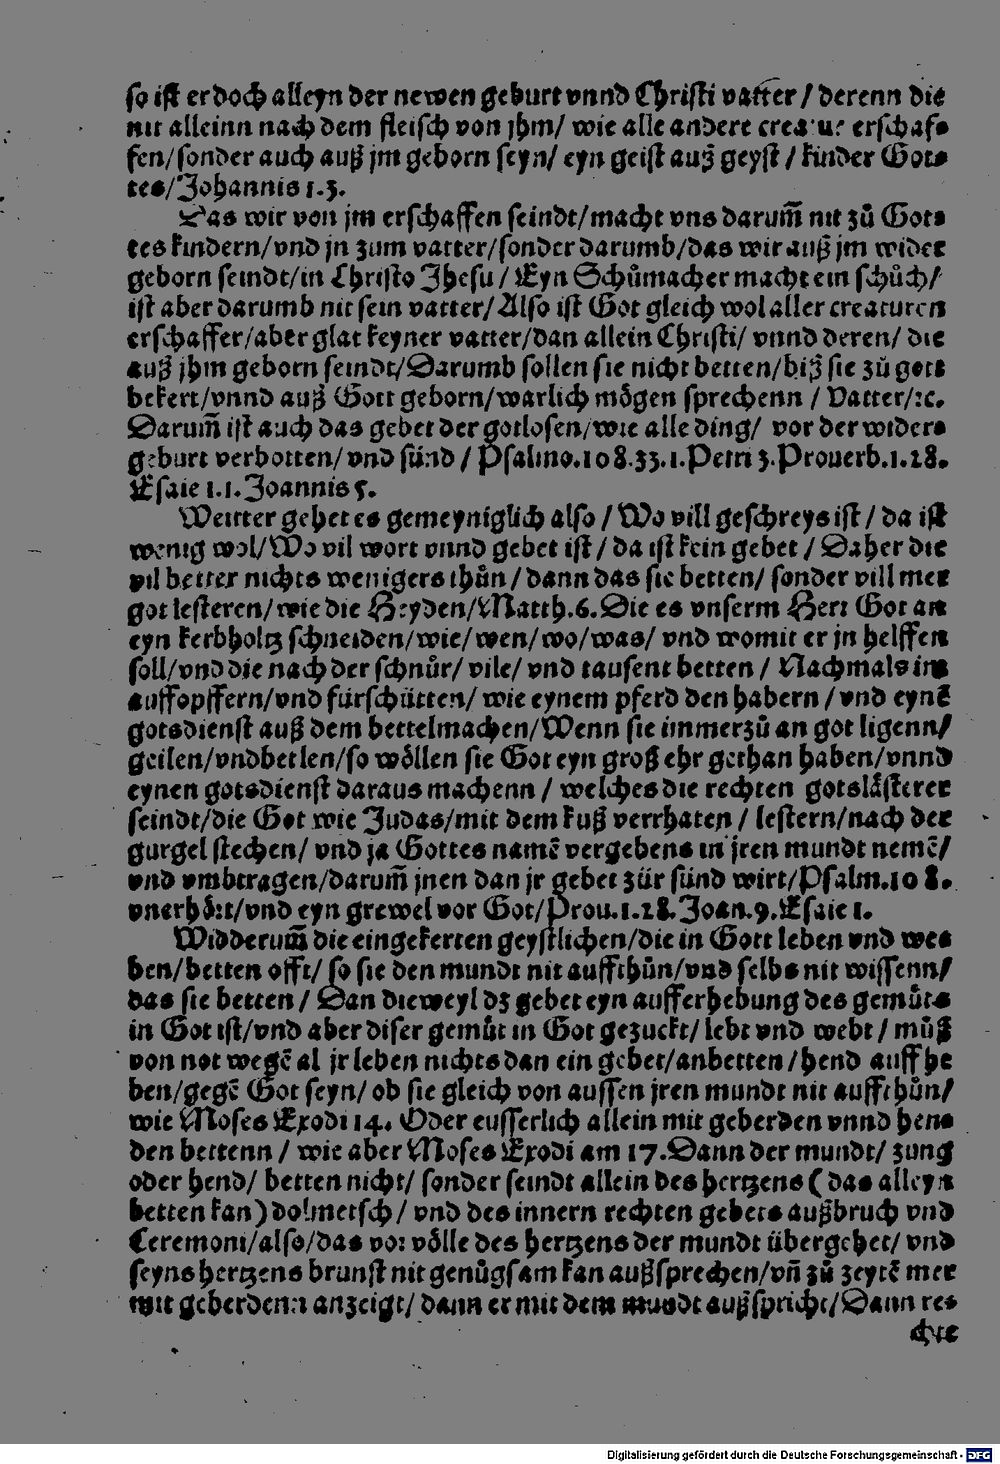 so ist er doch alleyn der newen geburt vnnd Christi vatter / derenn die
nit alleinn nach dem fleisch von jhm/ wie alle andere creatur erschaf⸗
fen/sonder auch auß jm geborn seyn/ eyn geist auß geyst / kinder Got⸗
tes/Johannis 1.3.
Das wir von jm erschaffen seindt/macht vns darum̃ nit zů Got⸗
tes kindern/vnd jn zum vatter/sonder darumb/das wir auß jm wider
geborn seindt/in Christo Jhesu / Eyn Schůmacher macht ein schůch/
ist aber darumb nit sein vatter/Also ist Got gleich wol aller creaturen
erschaffer/aber glat keyner vatter/dan allein Christi/ vnnd deren/ die
auß jhm geborn seindt/Darumb sollen sie nicht betten/biß sie zů gott
bekert/vnnd auß Gott geborn/warlich mögen sprechenn / Vatter/ꝛc.
Darum̃ ist auch das gebet der gotlosen/wie alle ding/ vor der wider⸗
geburt verbotten/vnd sünd / Psalmo.108.33.1.Petri 3.Prouerb.1.28.
Esaie 1.1. Joannis 5.
Weitter gehet es gemeyniglich also / Wo vill geschreys ist / da ist
wenig wol/Wo vil wort vnnd gebet ist / da ist kein gebet / Daher die
vil better nichts wenigers thůn / dann das sie betten/ sonder vill mer
got lesteren/wie die Heyden/Matth.6.Die es vnserm Herr Got an
eyn kerbholtz schneiden/wie/wen/wo/was/ vnd womit er jn helffen
soll/vnd die nach der schnůr/ vile/ vnd tausent betten / Nachmals im
auffopffern/vnd fürschütten/ wie eynem pferd den habern / vnd eynẽ
gotsdienst auß dem bettelmachen/Wenn sie immerzů an got ligenn/
geilen/vndbetlen/so wöllen sie Got eyn groß ehr gethan haben/vnnd
eynen gotsdienst daraus machenn / welches die rechten gotslästerer
seindt/die Got wie Judas/mit dem kuß verrhaten / lestern/nach der
gurgel stechen/ vnd ja Gottes namẽ vergebens in jren mundt nemẽ/
vnd vmbtragen/darum̃ jnen dan jr gebet zür sünd wirt/Psalm.108.
vnerhört/vnd eyn grewel vor Got/Prou.1.28.Joan.9.Esaie 1.
Widderum̃ die eingekerten geystlichen/die in Gott leben vnd we⸗
ben/betten offt/ so sie den mundt nit auffthün/vnd selbs nit wissenn/
das sie betten / Dan dieweyl dz gebet eyn aufferhebung des gemůts
in Got ist/vnd aber diser gemůt in Got gezuckt/ lebt vnd webt / můß
von not wegẽ al jr leben nichts dan ein gebet/anbetten / hend auff he
ben/gegẽ Got seyn/ ob sie gleich von aussen jren mundt nit auffthůn/
wie Moses Exodi 14. Oder eusserlich allein mit geberden vnnd hen⸗
den bettenn / wie aber Moses Exodi am 17.Dann der mundt/ zung
oder hend/ betten nicht/ sonder seindt allein des hertzens ( das alleyn
betten kan ) dolmetsch / vnd des innern rechten gebets außbruch vnd
Ceremoni/also/das vor völle des hertzens der mundt übergehet/ vnd
seyns hertzens brunst nit genůgsam kan außsprechen/vñ zů zeytẽ mer
mit geberdenn anzeigt/ dann er mit dem mundt außspricht/Dann re⸗
chte
Digitalisierung gefördert durch die Deutsche Forschungsgemeinschaft - DFG